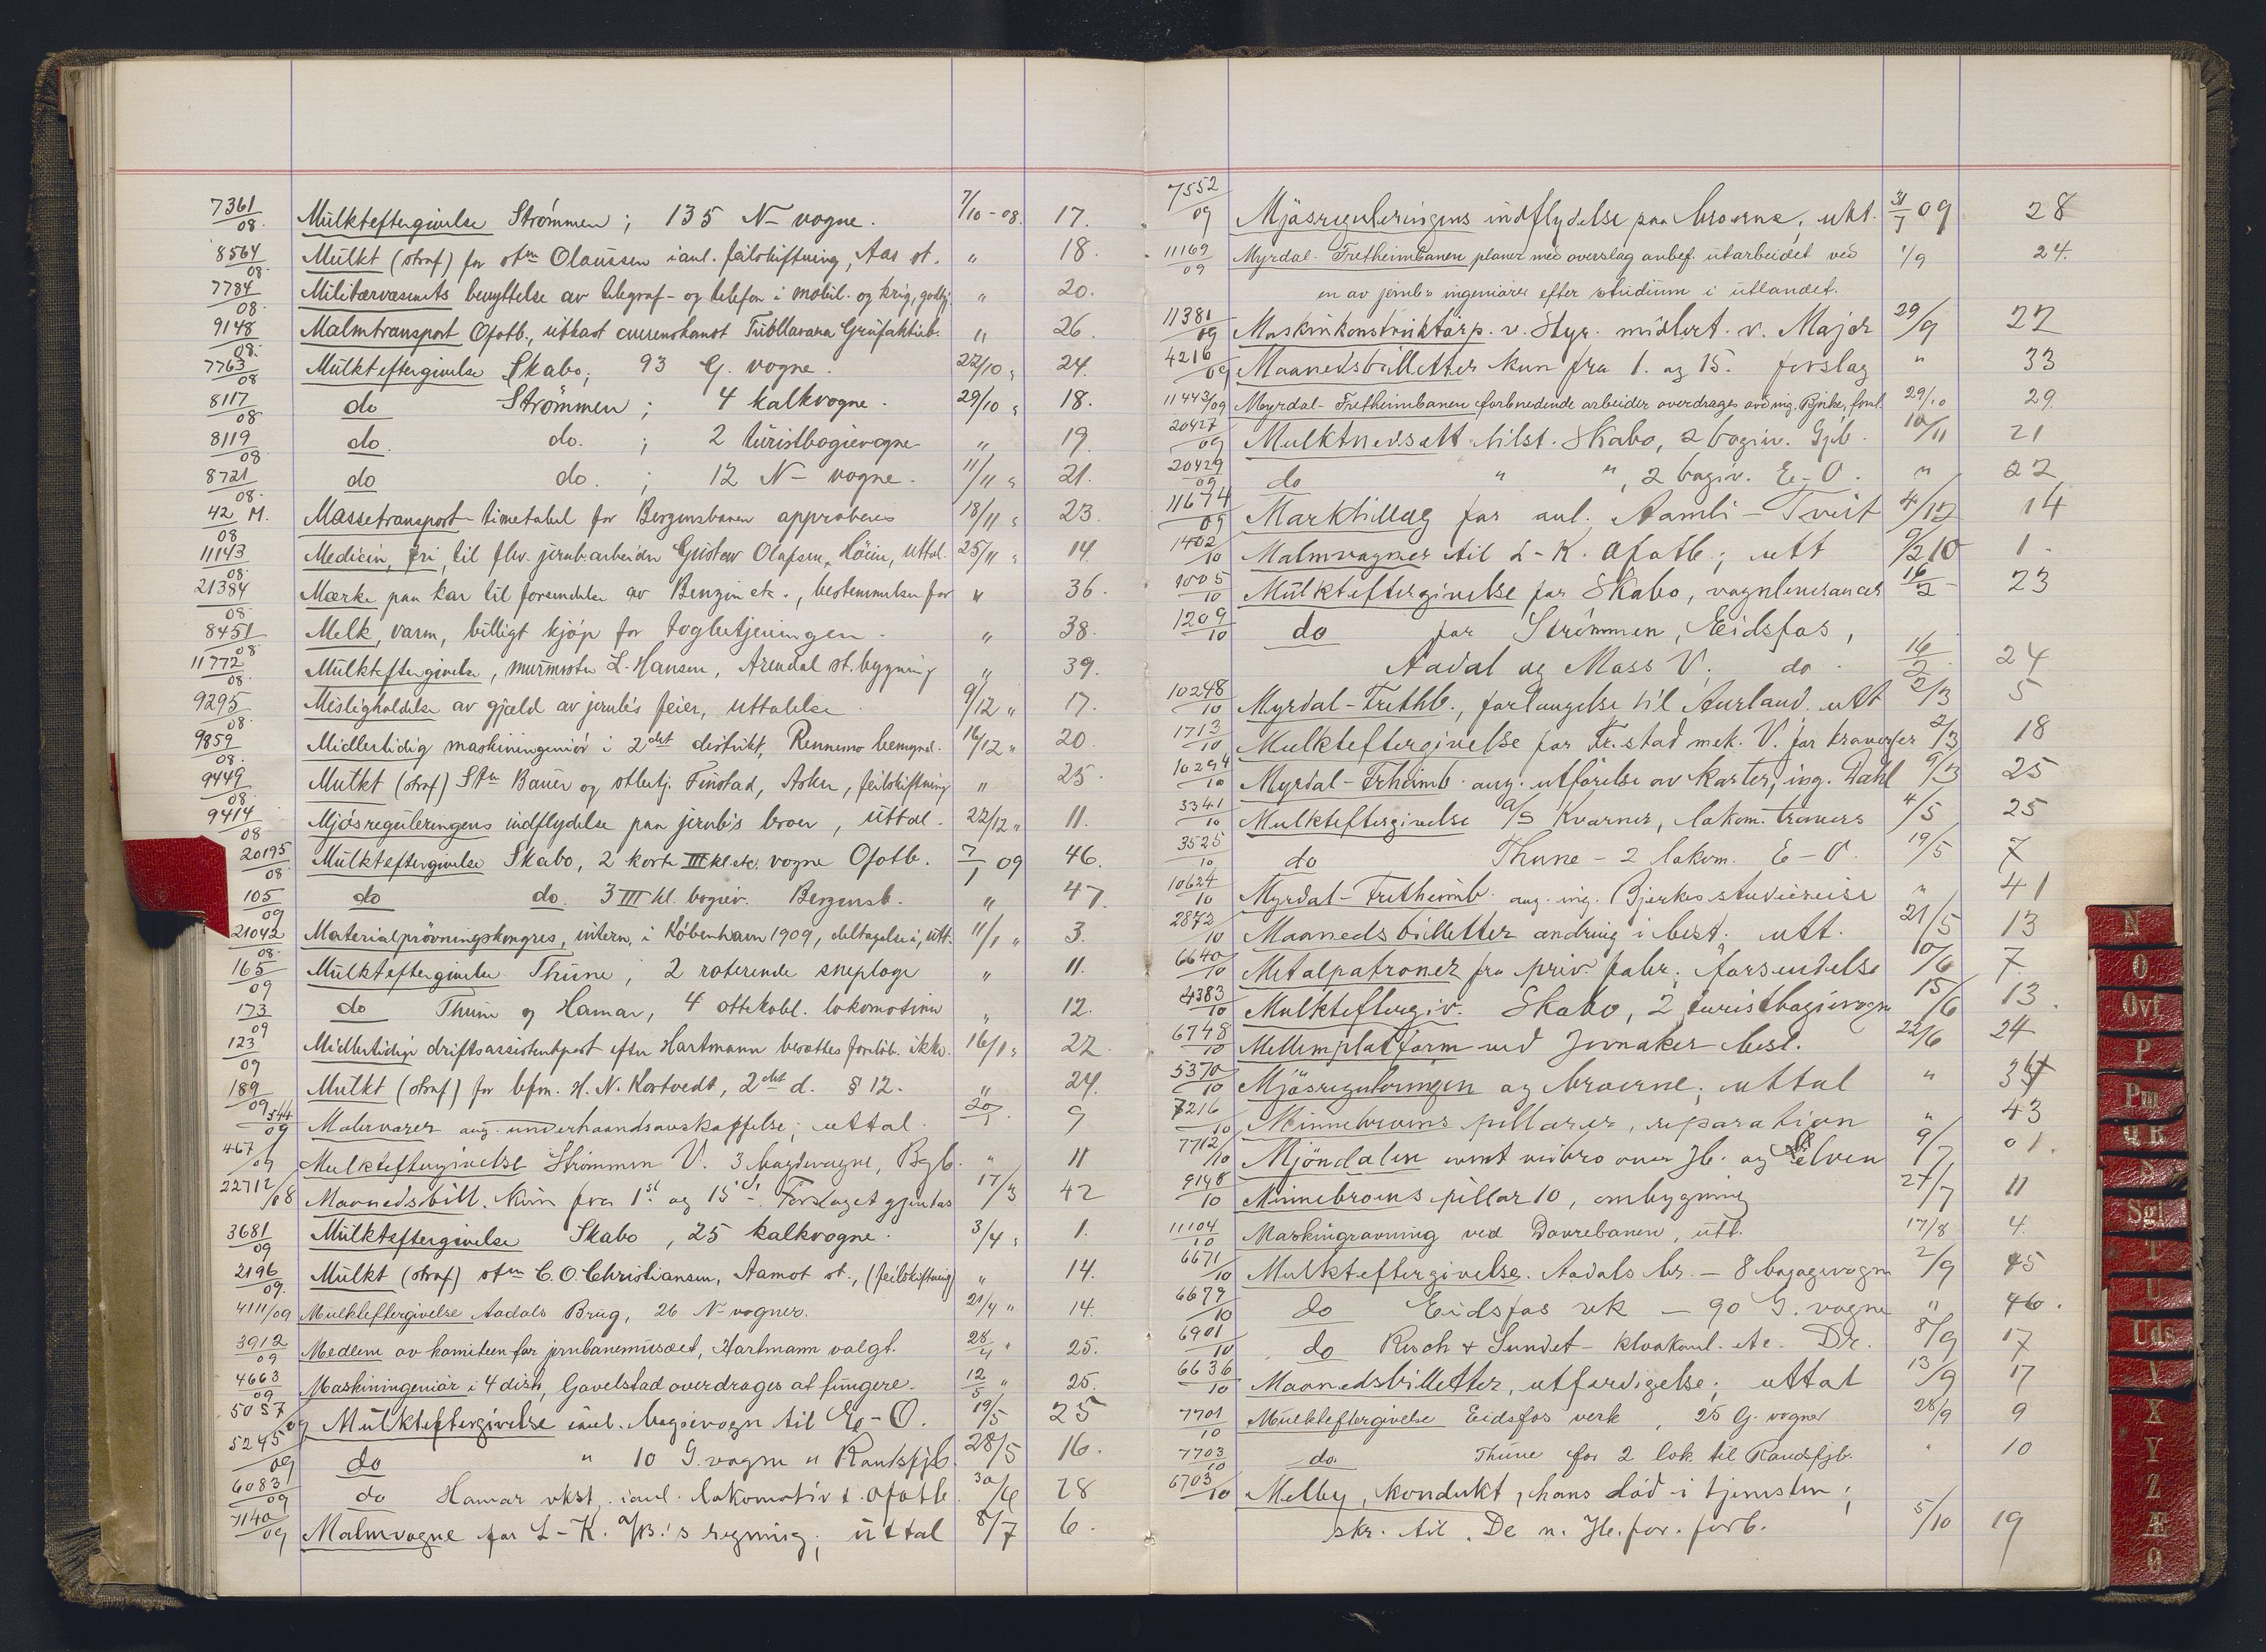 7361/08. Mulkteftergivelse Strömmen; 135 N- vogne. 7/10-08. 17.
8564/08. Mulkt (straf) for stm Olaussen i anl. feilskiftning, Aas st. " 18.
7784/08. Militærvæsenets benyttelse av telegraf- og telefon i mobil. og krig, godtg. " 20.
9148/08. Malmtransport Ofotb., utkast Grufaktieb. " 26.
7763/08 Mulkteftergivelse Skabo; 93 G. vogne. 22/10 " 24.
8117/08 do Strömmen; 4 kalkvogne. 29/10 " 18.
8119/08 do. do. ; 2 turistbogievogne " 19.
8721/08. do do. ; 12 N- vogne. 11/11 " 21.
42 M./08 Massetransport-timetabel for Bergensbanen approberes 18/11 " 23.
11143/08. Medicin, fri, til flv. jernb.arbeider Gustav Olafsen, Höien, uttal. 25/11 " 14.
21384/08. Mærke paa kar til forsendelse av Benzin etc., bestemmelser for " 36.
8451/08. Melk, varm, billigt kjöp for togbetjeningen. " 38.
11772/08. Mulkteftergivelse, murmester L. Hansen, Arendal st. bygning " 39.
9295/08. Misligholdelse av gjæld av jernb's feier, uttalelse 9/12 " 17.
9859/08. Midlertidig maskiningeniör i 2det distrikt, Rennemo bemynd. 16/12 " 20.
9449/08. Mulkt (straf) Stm Bauer og stbetj. Finstad, Asker, feilskiftning " 25.
9414/08 Mjösreguleringens indflydelse paa jernb's broer, uttal. 22/12 " 11.
20195/08 Mulkteftergivelse Skabo, 2 korte III kl. etc. vogne Ofotb. 7/1 09 46.
105/09 do do. 3 III kl. bogiev. Bergensb. " 47.
21042/08. Materialprövningskongres, intern. i Köbenhavn 1909, deltagelse i, utt. 11/1 " 3.
165/09 Mulkteftergivelse Thune; 2 roterende sneploge " 11.
173/09 do Thune og Hamar, 4 ottekobl. lokomotiver " 12.
123/09 Midlertidige driftsassistentpost efter Hartmann besættes forelöb. ikke. 16/1 " 22.
189/09 Mulkt (straf) for bfm. H. N. Kortvedt, 2det d. § 12. " 24.
544/09 Malervarer ang. underhaandsanskaffelse; uttal. 20/1. 9
467/09 Mulkteftergivelse Strömmen V. 3 bogievogne, Bgb. " 11
22712/08 Maanedsbill. kun fra 1st og 15de. Forslaget gjentas 17/3 42
3681/09 Mulkteftergivelse Skabo, 25 kalkvogne. 3/4 " 1.
2196/09. Mulkt (straf) stm C. O. Christiansen, Aamot st., (feilskiftning) " 14.
4111/09 Mulkteftergivelse Aadals Brug, 26 N- vogner. 21/4 " 14.
3912/09 Medlem av komiteen for jernbanemuseet, Hartmann valgt. 28/4 " 25.
4663/09 Maskiningeniör i 4 distr., Gavelstad overdrages at fungere. 12/5 " 25.
5057/09 Mulkteftergivelse i anl. bogievogn til E.-O. 19/5 25
5245/09 do " 10 G. vogne " Randsfjb. 28/5 16.
6083/09 do Hamar vkst. i anl. lokomotiv t. Ofotb. 30/6 28
7140/09 Malmvogne for L-K. A/B.'s regning; uttal 8/7 6.
7552/09 Mjösreguleringens indflydelse paa broerne, utt. 31/7 09 28
11169/09 Myrdal-Fretheimbanen planer med overslag anbef. utarbeidet ved 1/9 24.
en av jernb's ingeniörer efter studium i utlandet.
11381/09 Maskinkonstruktörp. v. Styr. midlert. v. Major 29/9 27
4216/09 Maanedsbilletter kun fra 1. og 15. forslag " 33
11443/09 Myrdal-Fretheimbanen forberedende arbeider overdrages avd.ing. Bjerke, forsl. 29/10 29.
20427/09 Mulktnedsætt. tilst. Skabo, 2 bogiv. Gjb. 10/11 21
20429/09 do " ", 2 bogiv. E-O. " 22
11674/09 Marktillæg for anl. Aamli-Tveit 4/12 14
1402/10 Malmvogner til L-K. Ofotb.; utt 9/2 10 1.
1005/10 Mulkteftergivelse for Skabo, vognleverancer 16/2 23
1209/10 do for Strömmen, Eidsfos,
Aadal og Moss V; do. 16/2. 24
10248/10 Myrdal-Frethb., forlængelse til Aurland. utt 2/3 5
1713/10 Mulkteftergivelse for Fr.stad mek. V. for traverser 2/3 18
10294/10 Myrdal-Frheimb. ang. utförelse av karter, ing. Dahl 9/3 25
3341/10 Mulkteftergivelse A/S Kværner, lokom. travers 4/5 25
3525/10 do Thune - 2 lokom. E-O. 19/5 7
10624/10 Myrdal-Fretheimb. ang. ing. Bjerkes studiereise " 41
2872/10 Maanedsbilletter ændring i best. utt. 21/5 13
6640/10 Metalpatroner fra priv. fabr. forsendelse 10/6 7.
4383/10 Mulkteftergiv. Skabo, 2 turistbogievogne 15/6 13.
6748/10 Mellemplatform ved Jevnaker besl. 22/6 24
5370/10 Mjösreguleringen og broerne; uttal " 37
7216/10 Minnebroens pillarer, reparation " 43
7712/10 Mjöndalen veibro over Jb. og elven 9/7 01.
9148/10 Minnebroens pillar 10, ombygning 27/7 11
11104/10 Maskingravning ved Dovrebanen, utt. 17/8 4.
6671/10 Mulkteftergivelse. Aadals br. - 8 bagagevogne 2/9 45
6679/10 do Eidsfos vk - 90 G. vogne " 46.
6901/10 do Risch & Sundet - etc. Dr. 8/9 17
6636/10 Maanedsbilletter, utfærdigelse; uttal 13/9 17
7701/10 Mulkteftergivelse Eidsfos verk, 25 G. vogner 28/9 9
7703/10 do. Thune for 2 lok. til Randsfjb. " 10
6703/10 Melby, kondukt., hans död i tjenesten;
skr. til De n. Jb. for. forb. 5/10 19
N
O
Ovf
P
Pm
Q R
S
Sgl
T
U
Uds
V
X
Y
Z
Æ
Ø